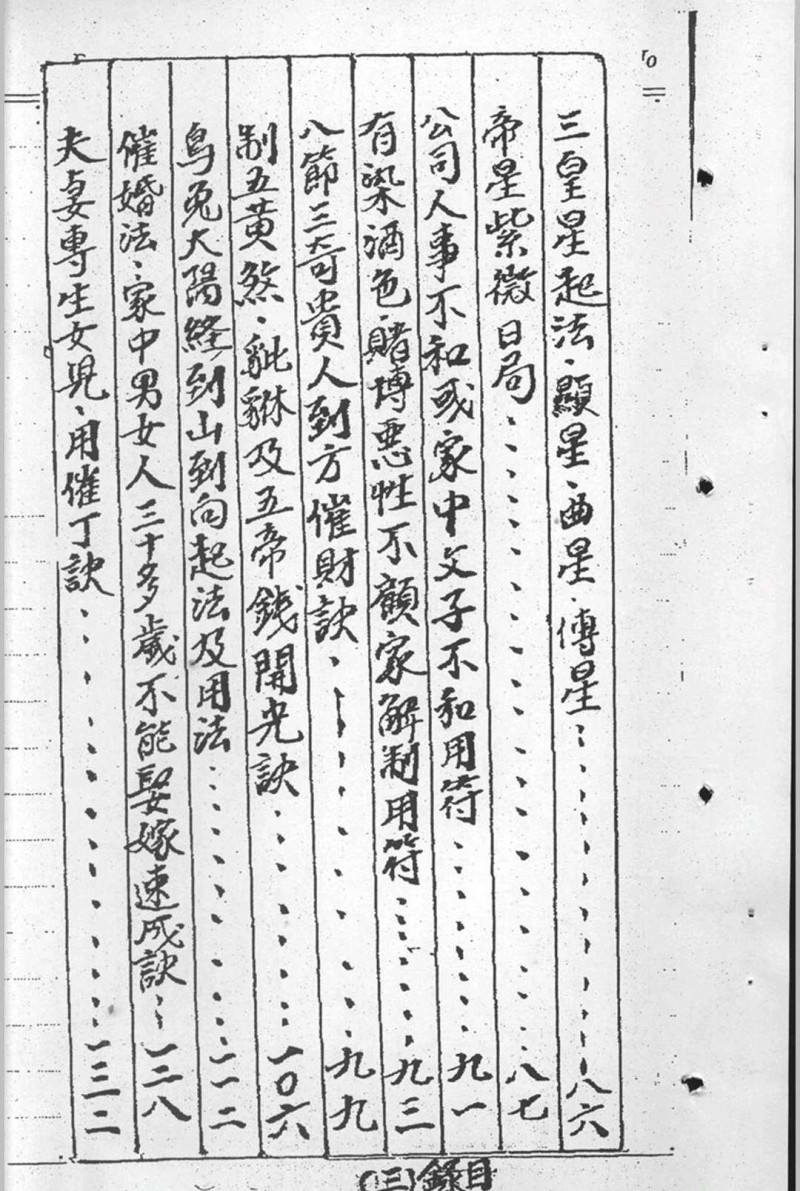 三皇星起法、顯星、曲星、傅星……八六
帝星紫微日局……八七
公司人事不和或家中父子不和用符……九一
有染酒色、賭博惡性不顧家解制用符……九三
八節三奇貴人到方催財訣……九九
制五黃煞、貔貅及五帝錢開光訣……一〇六
烏兔太陽經到山到向起法及用法……一一二
催婚法、家中男女人三十多歲不能娶嫁速成訣……一二八
夫妻專生女兒、用催丁訣……一三二
目錄(三)